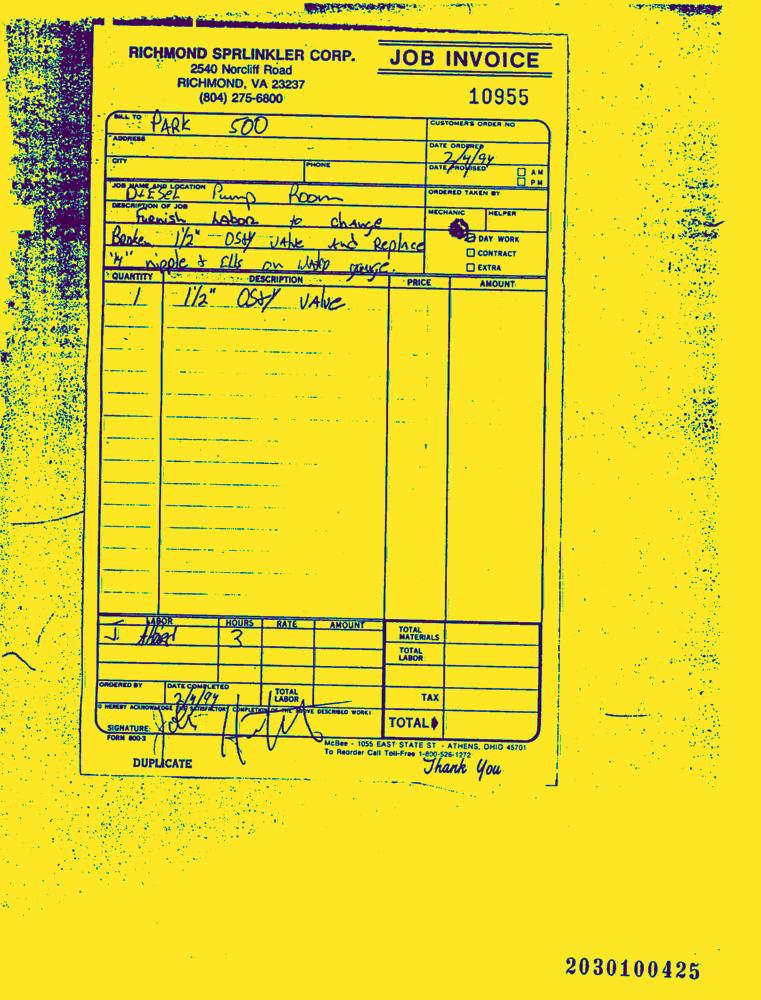 RICHMOND SPRLINKLER CORP.
2540 Norcliff Road
RICHMOND, VA 23237
(804) 275-6800
JOB INVOICE
10955
BILL TO PARK 500
CUSTOMER'S ORDER NO
ADDRESS
DATE ORDERED
2/4/94
CITY
PHONE
DATE PROMISED
AM
PM
JOB NAME AND LOCATION
DIESEL Pump Room
ORDERED TAKEN BY
DESCRIPTION OF JOB
MECHANIC HELPER
Furnish Labor to change
Broken 1/2" OS&Y valve And Replace
DAY WORK
CONTRACT
"4" nipple & ells on gauge.
EXTRA
QUANTITY DESCRIPTION PRICE AMOUNT
1 1/2" OS&Y VALVE
LABOR HOURS RATE AMOUNT
TOTAL MATERIALS
J. 3
TOTAL LABOR
ORDERED BY
DATE COMPLETED
2/4/94
TOTAL LABOR
TAX
I HEREBY ACKNOWLEDGE THE SATISFACTORY COMPLETION OF THE ABOVE DESCRIBED WORK:
TOTAL
SIGNATURE:
FORM 800-3
McBee - 1055 EAST STATE ST - ATHENS, OHIO 45701
To Reorder Call Toll-Free 1-800-526-1272
DUPLICATE
Thank You
2030100425